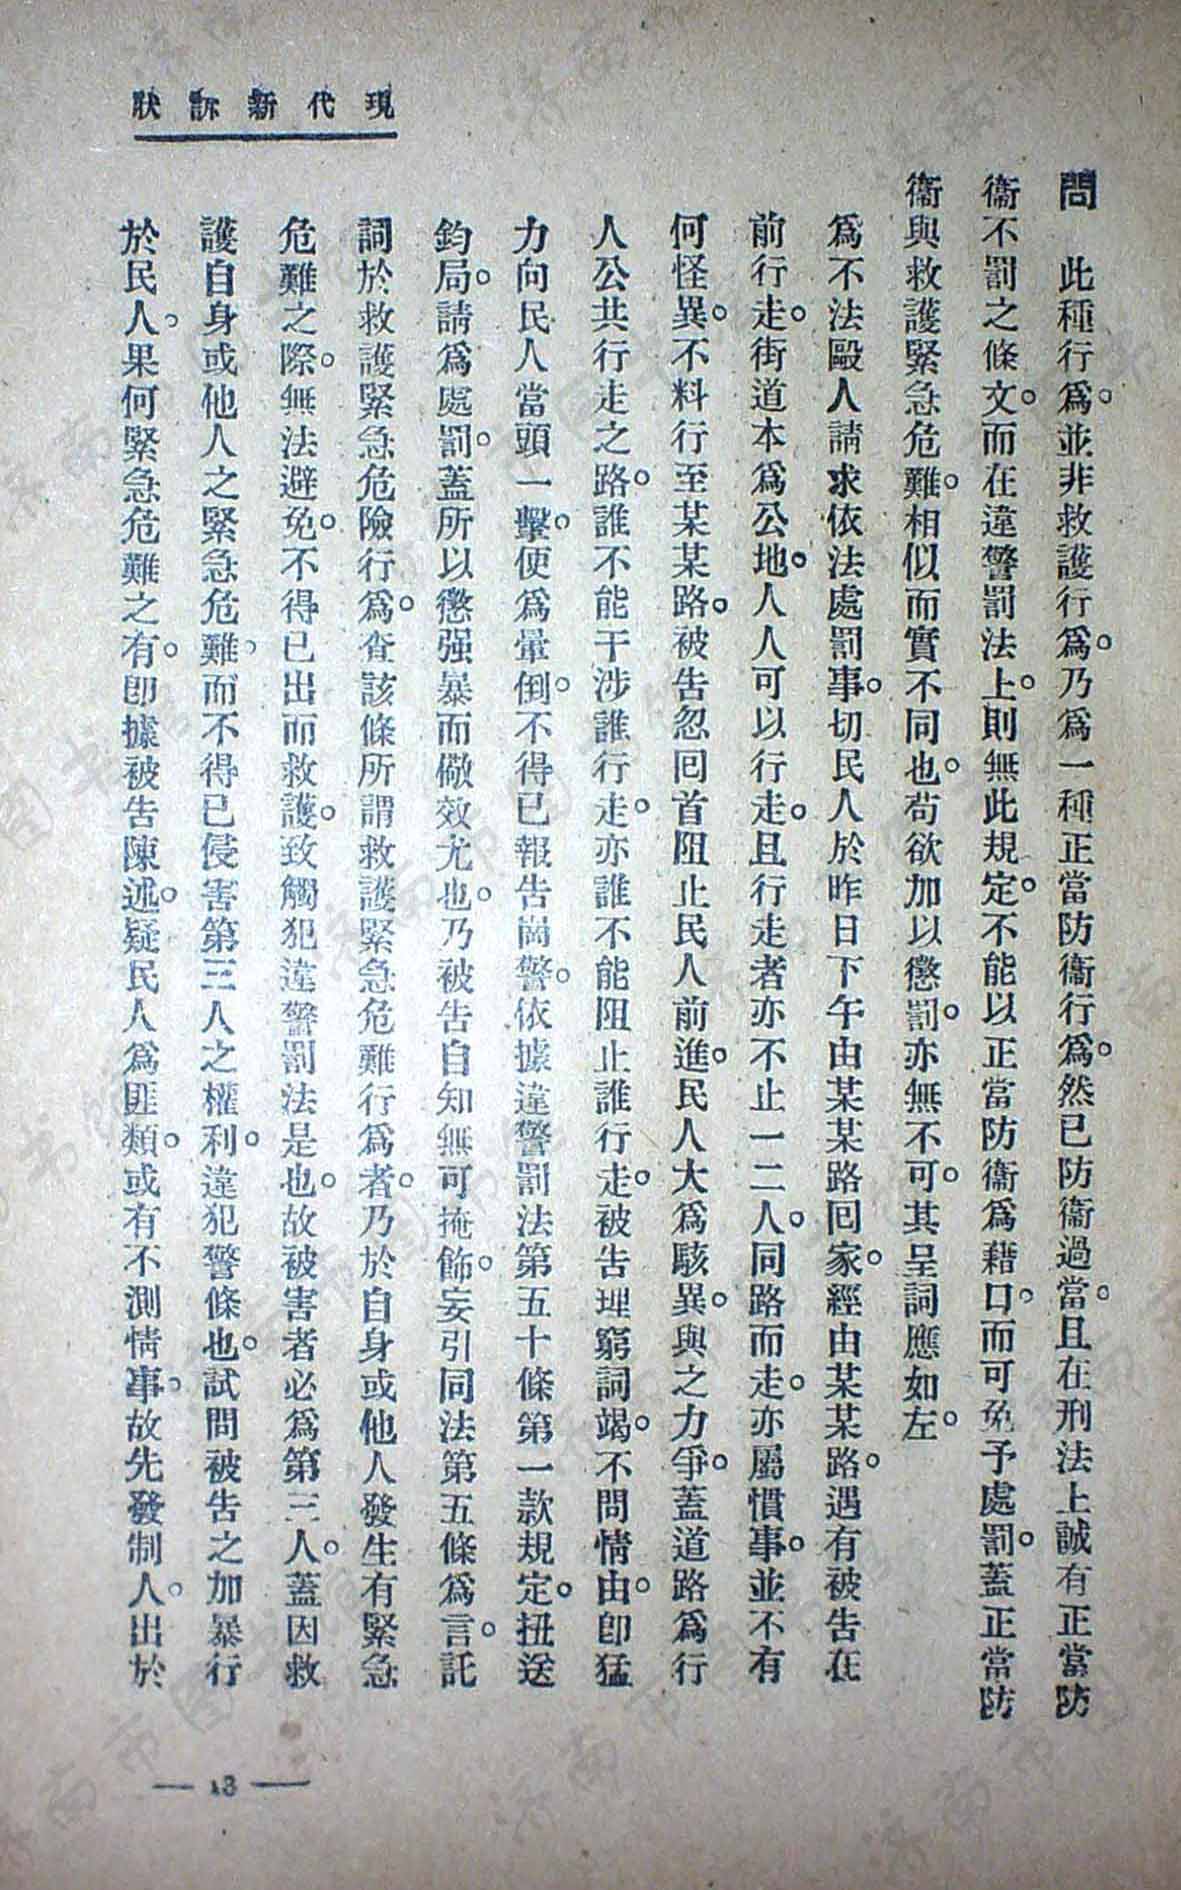 現代新訴狀
問　此種行爲。並非救護行爲。乃爲一種正當防衞行爲。然已防衞過當。且在刑法上誠有正當防
衞不罰之條文。而在違警罰法上。則無此規定。不能以正當防衞爲藉口。而可免予處罰。蓋正當防
衞與救護緊急危難。相似而實不同也。苟欲加以懲罰。亦無不可。其呈詞應如左。
爲不法毆人請求依法處罰事。切民人於昨日下午由某某路回家。經由某某路。遇有被告在
前行走。街道本爲公地。人人可以行走。且行走者亦不止一二人。同路而走。亦屬慣事。並不有
何怪異。不料行至某某路。被告忽回首阻止民人前進。民人大爲駭異。與之力爭。蓋道路爲行
人公共行走之路。誰不能干涉誰行走。亦誰不能阻止誰行走。被告理窮詞竭。不問情由。卽猛
力向民人當頭一擊。便爲暈倒。不得已報告崗警。依據違警罰法第五十條第一款規定。扭送
鈞局。請爲處罰。蓋所以懲强暴而儆效尤也。乃被告自知無可掩飾。妄引同法第五條爲言。託
詞於救護緊急危險行爲。查該條所謂救護緊急危難行爲者。乃於自身或他人發生有緊急
危難之際。無法避免。不得已出而救護。致觸犯違警罰法是也。故被害者必爲第三人。蓋因救
護自身或他人之緊急危難。而不得已侵害第三人之權利。違犯警條也。試問被告之加暴行
於民人。果何緊急危難之有。卽據被告陳述。疑民人爲匪類。或有不測情事。故先發制人。出於
— 13 —
济南市图书馆